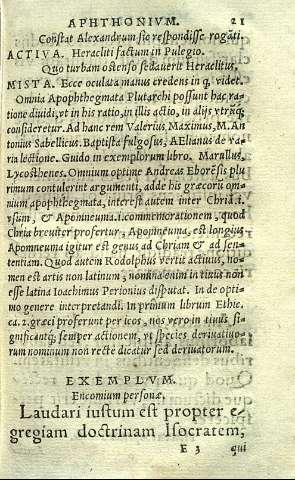 APHTHONIVM. 21
Constat Alexandrum sic respondisse rogāti.
ACTIVA. Heracliti factum in Pulegio.
Quo turbam ostenso sedauerit Heraclitus.
MISTA. Ecce oculata manus credens in q̃ videt.
Omnia Apophthegmata Plutarchi possunt hac ra-
tione diuidi, vt in his ratio, in illis actio, in alijs vtrūq;
consideretur. Ad hanc rem Valerius, Maximus, M. An
tonius Sabellicus. Baptista fulgosus, AElianus de va-
ria lectione. Guido in exemplorum libro. Marullus,
Lycosthenes. Omnium optime Andreas Eborēsis plu
rimum contulerint argumenti, adde his græcorū om-
nium apophthegmata, interest autem inter Chriā.i.
vsum, & Apomneuma.i.commemorationem, quod
Chria breuiter profertur, Apomneuma, est longius
Apomneuma igitur est genus ad Chriam & ad sen-
tentiam. Quod autem Rodolphus vertit actiuus, no-
men est artis non latinum, nomina enim in tiuus non
esse latina Ioachimus Perionius disputat. In de opti-
mo genere interpretandi. In primum librum Ethic.
ca.2. græci proferunt per icos, nos vero in tiuus si-
gnificantq; semper actionem, vt species deriuatiuo-
rum nominum non recte dicatur sed deriuatorum.
EXEMPLVM.
Encomium personæ.
Laudari iustum est propter e-
gregiam doctrinam Isocratem,
E 3 qui